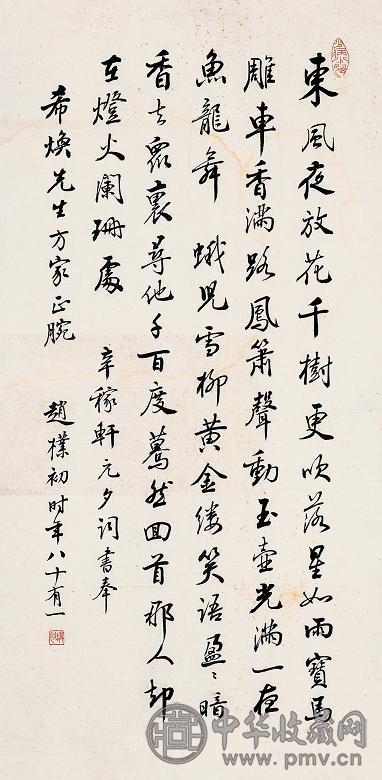 東風夜放花千樹更吹落星如雨寶馬
雕車香滿路鳳簫聲動玉壺光滿一夜
魚龍舞 蛾兒雪柳黃金縷笑語盈〻暗
香去眾裏尋他千百度驀然回首那人却
在燈火闌珊處 辛稼軒元夕詞書奉
希煥先生方家正腕 趙樸初時年八十有一
中华收藏网
www.pmv.cn